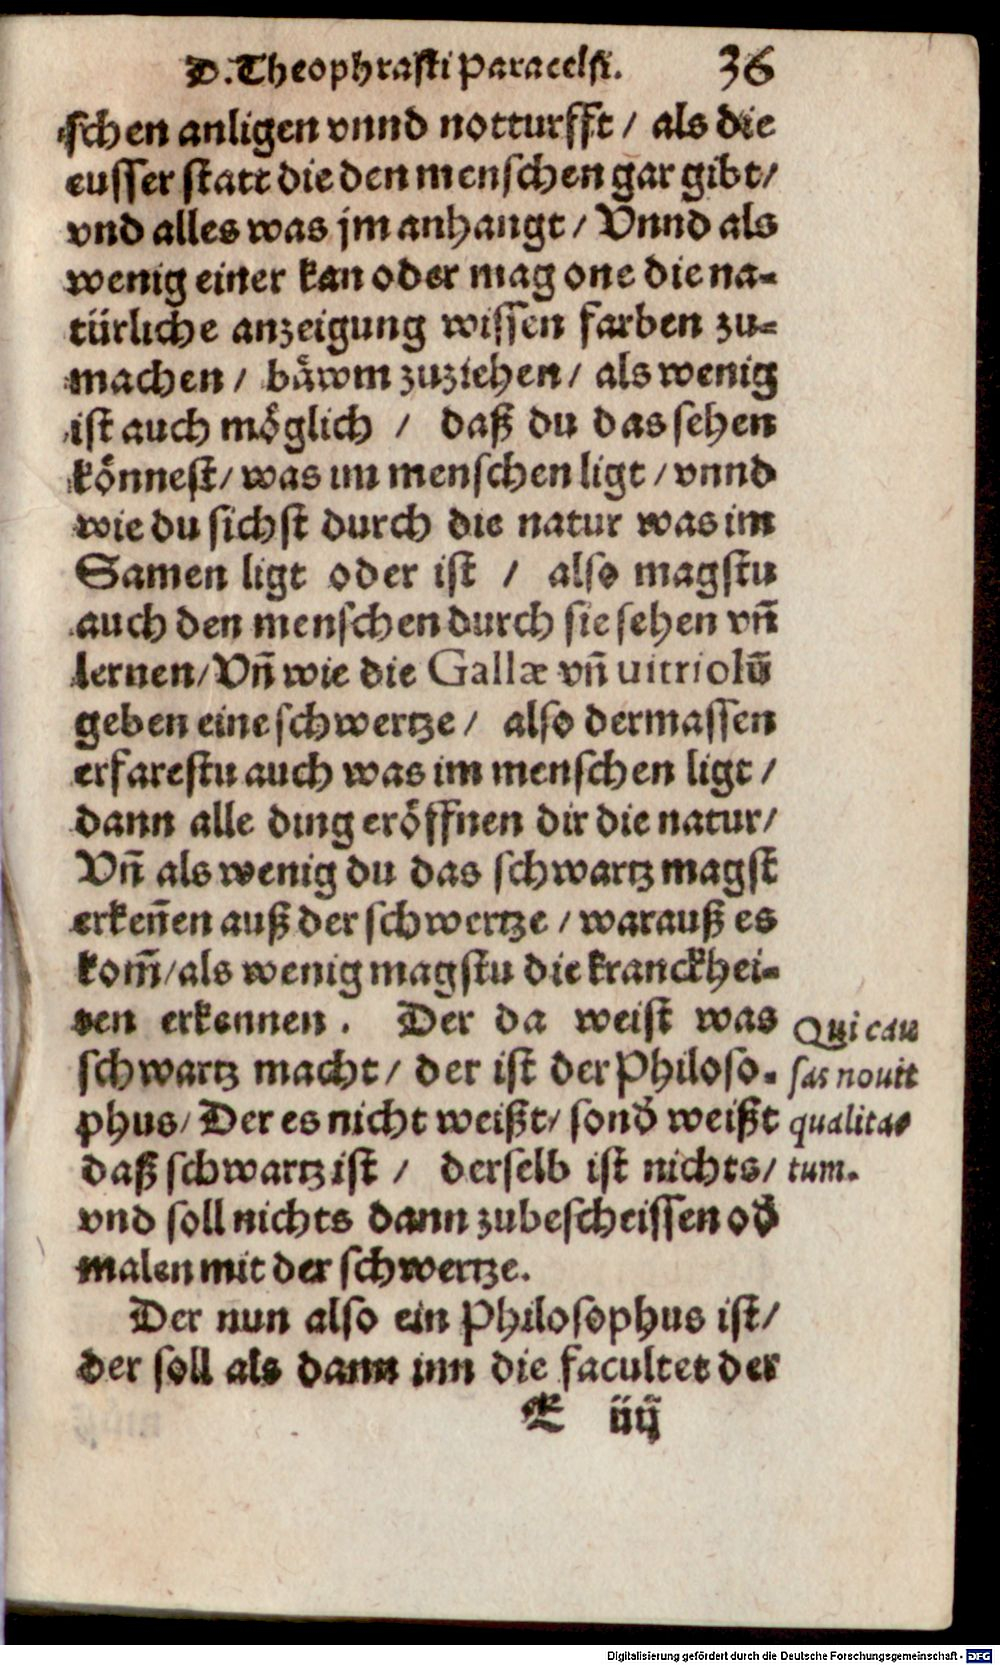 D. Theophrasti Paracelsi. 36
schen anligen vnnd notturfft / als die
eusser statt die den menschen gar gibt /
vnd alles was jm anhangt / Vnnd als
wenig einer kan oder mag one die na-
türliche anzeigung wissen farben zu-
machen / bäwm zuziehen / als wenig
ist auch möglich / daß du das sehen
könnest / was im menschen ligt / vnnd
wie du sichst durch die natur was im
Samen ligt oder ist / also magstu
auch den menschen durch sie sehen vñ
lernen / Vñ wie die Gallæ vñ uitriolū
geben eine schwertze / also dermassen
erfarestu auch was im menschen ligt /
dann alle ding eröffnen dir die natur /
Vñ als wenig du das schwartz magst
erkeñen auß der schwertze / warauß es
kom̃ / als wenig magstu die kranckhei-
ten erkennen. Der da weist was
schwartz macht / der ist der Philoso-
phus / Der es nicht weißt / sond̓ weißt
daß schwartz ist / derselb ist nichts /
vnd soll nichts dann zubescheissen od̓
malen mit der schwertze.
Der nun also ein Philosophus ist /
der soll als dann inn die facultet der
E iiij
Qui cau
sas nouit
qualita-
tum.
Digitalisierung gefördert durch die Deutsche Forschungsgemeinschaft - DFG